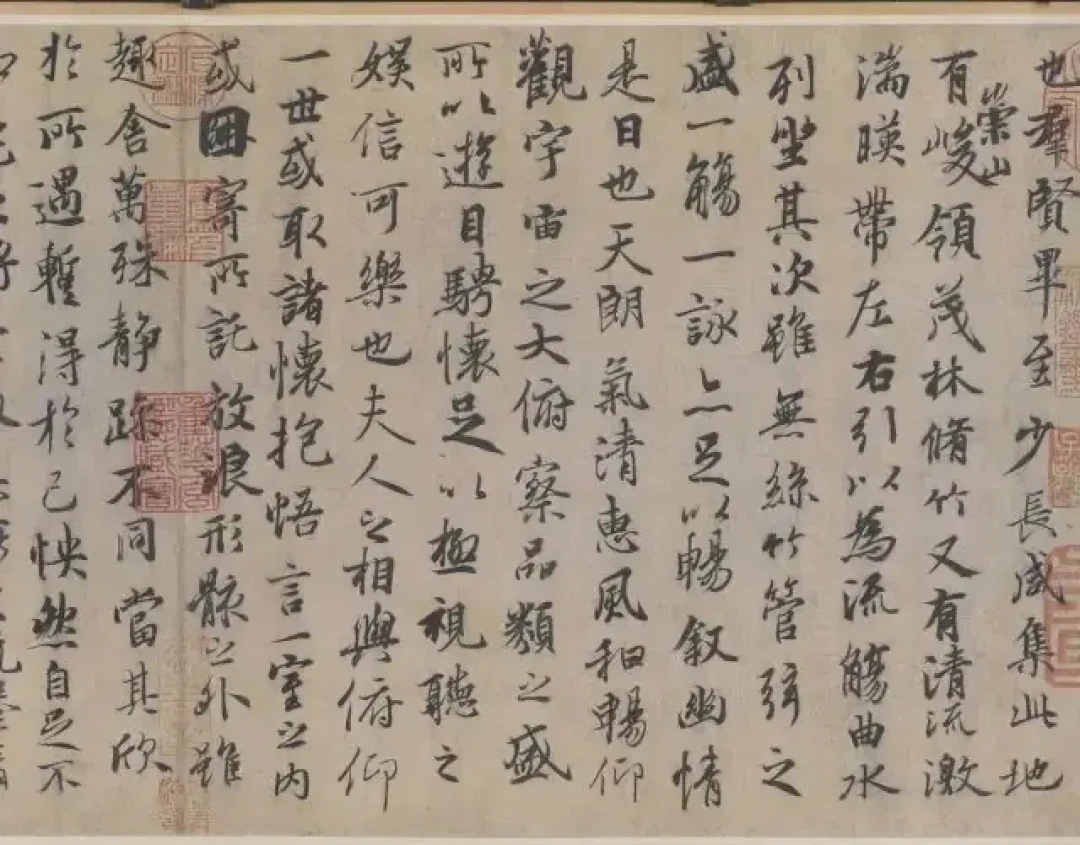 也羣賢畢至少長咸集此地
有崇山峻領茂林脩竹又有清流激
湍暎帶左右引以為流觴曲水
列坐其次雖無絲竹管弦之
盛一觴一詠亦足以暢叙幽情
是日也天朗氣清惠風和暢仰
觀宇宙之大俯察品類之盛
所以遊目騁懷足以極視聽之
娛信可樂也夫人之相與俯仰
一世或取諸懷抱悟言一室之內
或因寄所託放浪形骸之外雖
趣舍萬殊靜躁不同當其欣
於所遇暫得於己怏然自足不